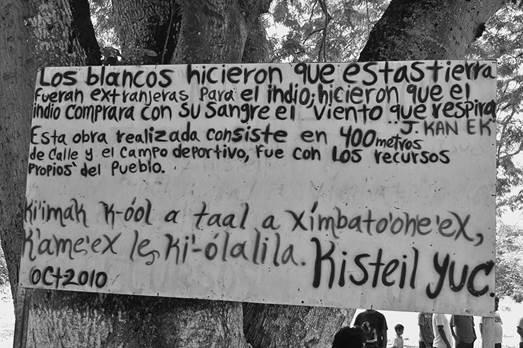 Los blancos hicieron que estas tierra
fueran extranjeras para el indio; hicieron que el
indio comprara con su sangre el viento que respira
J. KAN EK
Esta obra realizada consiste en 400 metros
de calle y el campo deportivo, fue con los recursos
propios del Pueblo.
Ki'imak k-óol a taal a xíimbato'one'ex,
k'ame'ex le ki'-ólalila. Kisteil Yuc.
Oct 2010